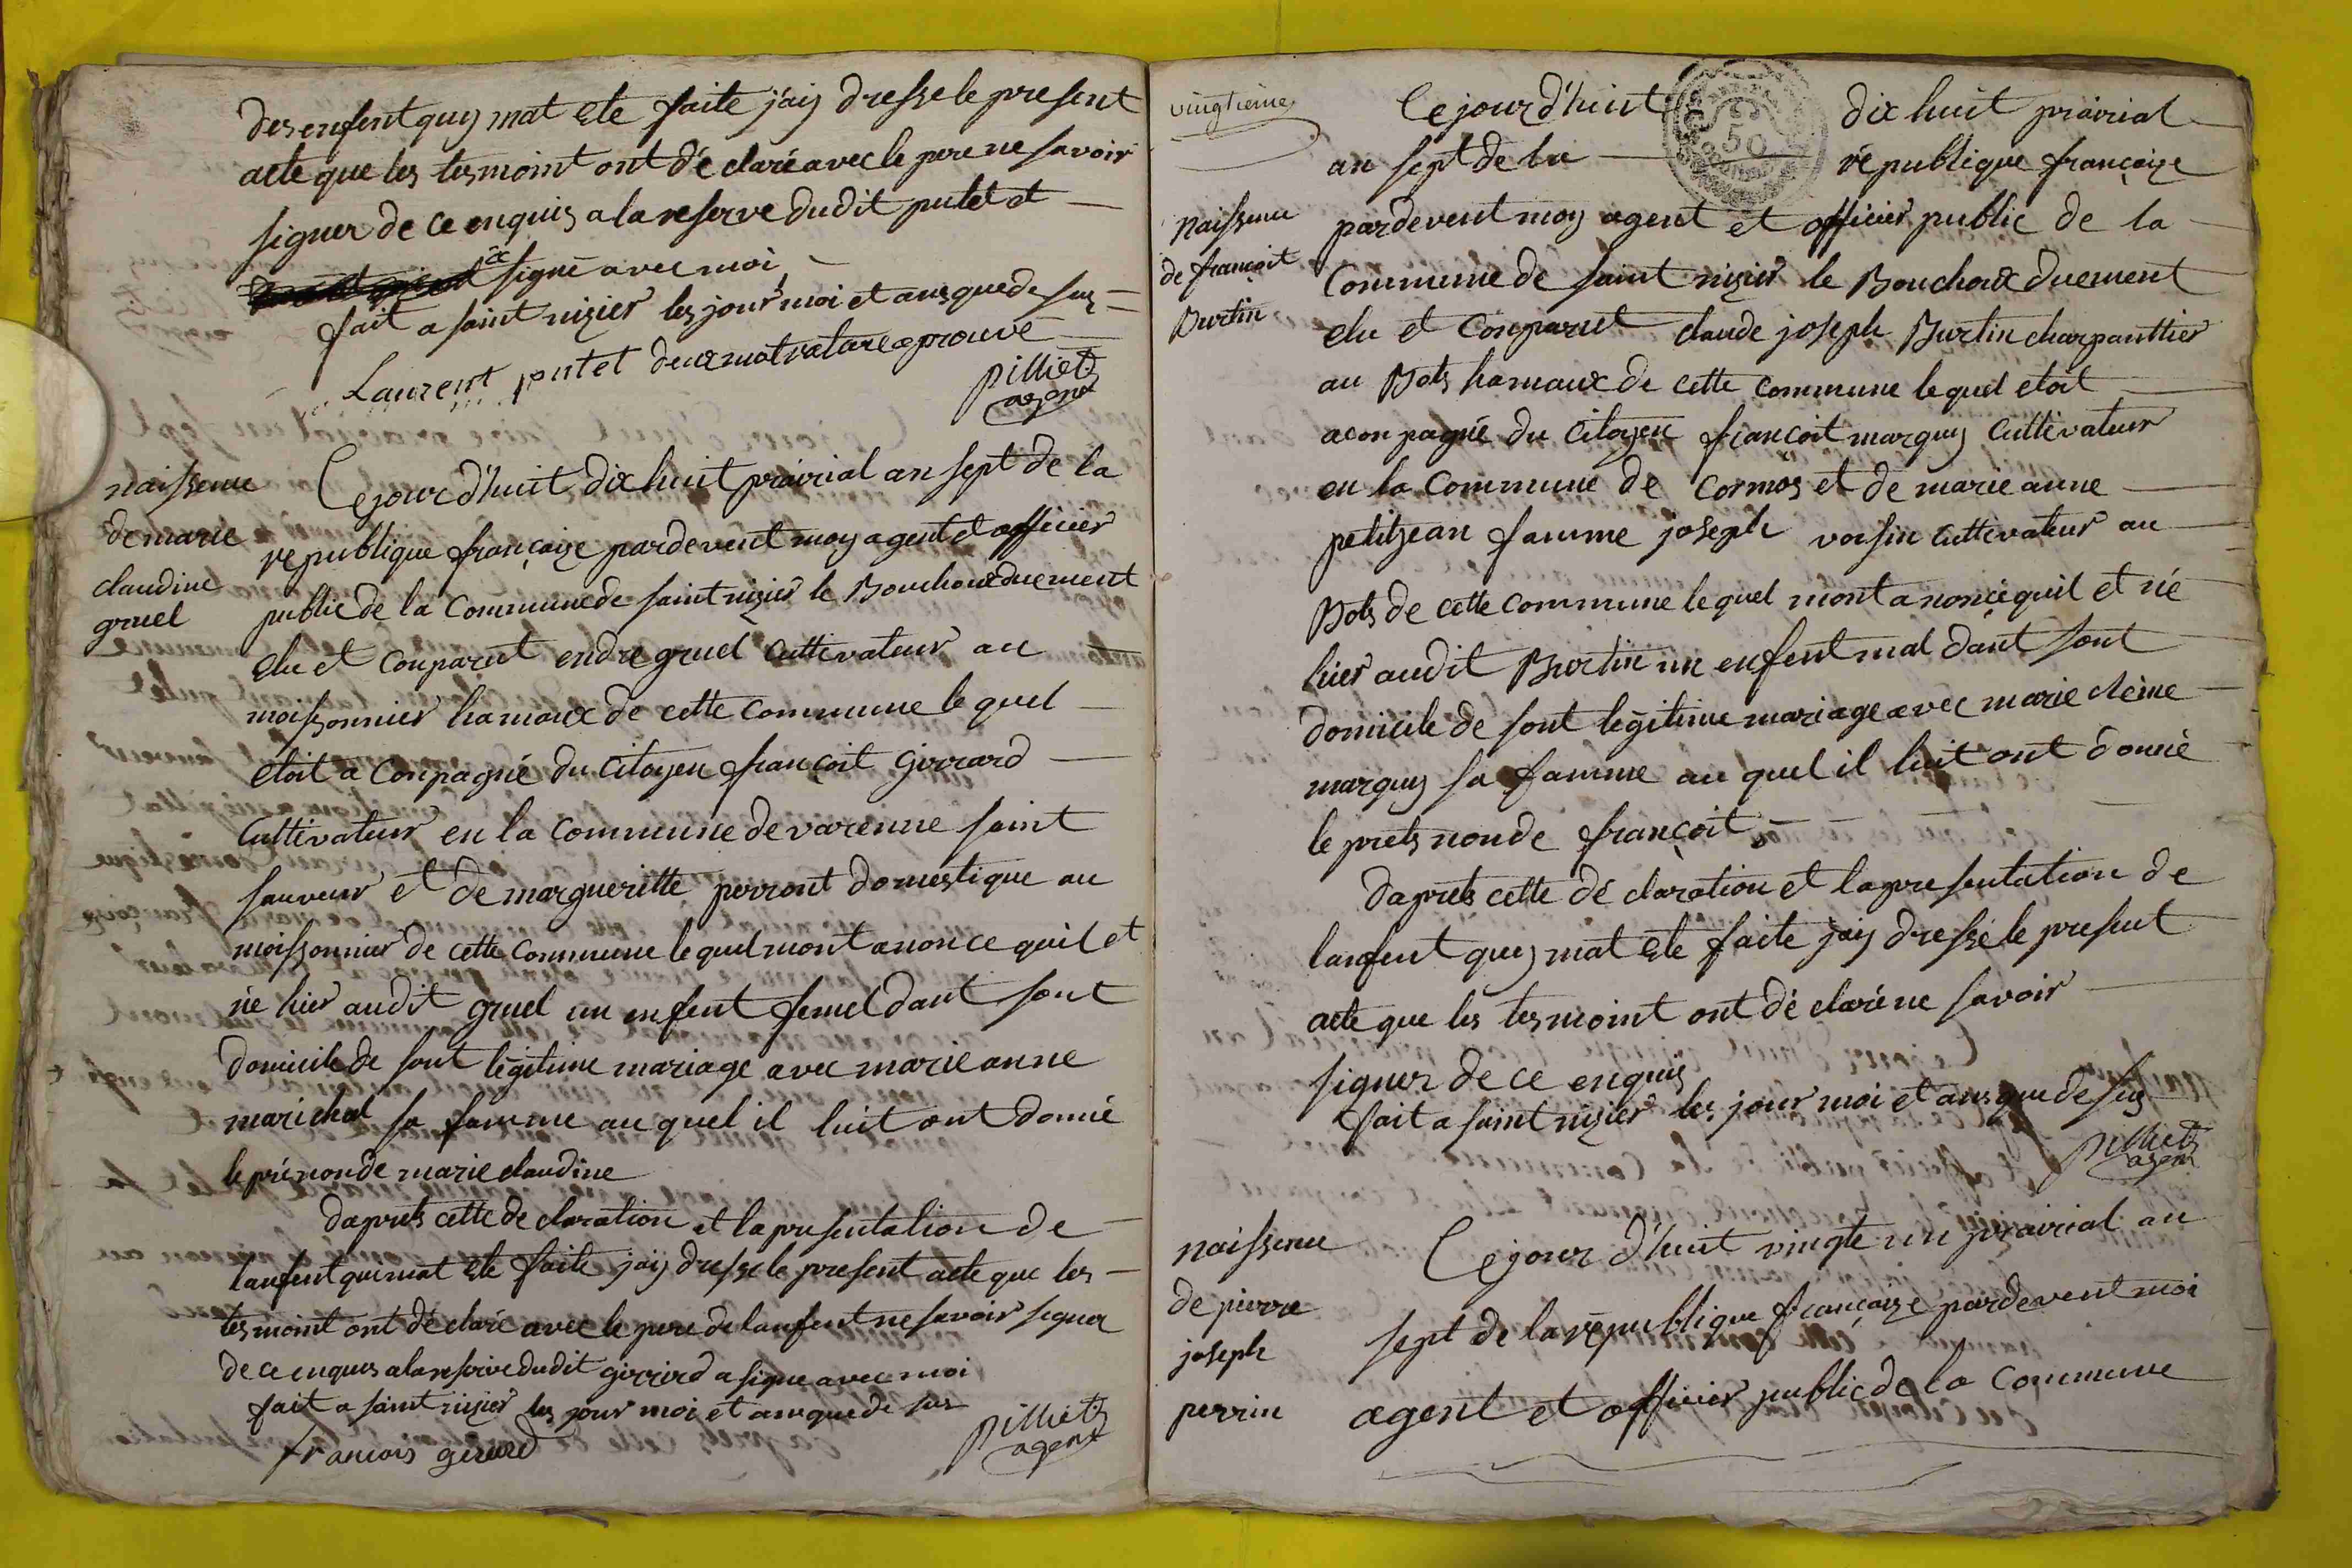 des enfent quy mat ete faite j'aiy dresse le present
acte que les tesmoint ont dé claré avec le pere ne savoir
signer de ce enquis a la reserve dudit putet et
a signé avec moi
fait a saint nizier les jour moi et ans que de sus
Laurent putet deux mot rature aprouvé
pilliet
agent
naissence
de marie
claudine
gruel
Cejourd'huit dix huit prairial an sept de la
republique françaize pardevent moy agent et officier
public de la Commune de saint nizier le Bouchoux duement
elu et Conparut endre gruel Cultivateur au
moissonnier hamaux de cette Commune le quel
etoit a Conpagné du Citoyen françoit girrard
Cultivateur en la Commune de varenne saint
sauveur et de margueritte perront domestique au
moissonnier de cette Commune le quel mont anonce quil et
né hier audit gruel un enfent femel dant sont
domicile de sont légitime mariage avec marie anne
marichal sa famme au quel il luit ont donné
le prénon de marie claudine
daprets cette de claration et la presentation de
lanfent qui mat ete faite jaiy dresse le present acte que les
tesmoint ont dé claré avec le pere de lanfent ne savoir signer
de ce enquis a la reserve dudit girrird a signe avec moi
fait a saint nizier les jour moi et ans que de sus
francois girard
pilliet
agent
vingtieme
Cejourd'huit dix huit prairial
50
an sept de la république françaize
naissence
de françoit
Burtin
pardevent moy agent et officier public de la
Commune de saint nizier le Bouchoux duement
elu et Conparut claude joseph Burtin charpanttier
au Bots hamaux de cette Commune le quel etoit
acon pagné du Citoyen françoit marquy Cultivateur
en la Commune de Cormos et de marie anne
petitjean famme joseph voisin Cultivateur au
Bots de cette Commune le quel mont anoncé quil et né
hier audit Burtin un enfent mal dant sont
domicile de sont legitime mariage avec marie
marquy sa famme au quel il luit ont donné
le prets non de françoit
daprets cette dé claration et la presentation de
lanfent quy mat ete faite jaiy dressé le present
acte que les tesmoint ont dé claré ne savoir
signer de ce enquis
fait a saint nizier les jour moi et ans que de sus
pilliet
agent
naissence
de pierre
joseph
perrin
Cejour d'huit vingte un prairial an
sept de la republique françaize pardevent moi
agent et officier public de la Commune